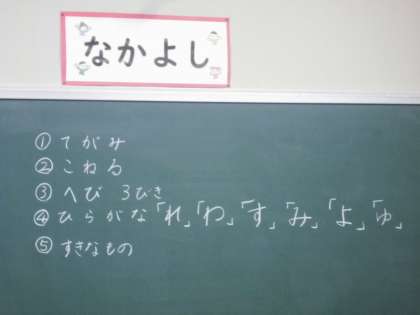 なかよし
① てがみ
② こねる
③ へび 3びき
④ ひらがな「れ」「わ」「す」「み」「よ」「ゆ」
⑤ すきなもの